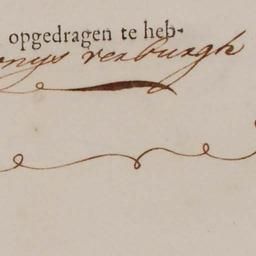 opgedragen te heb-
onys verburgh